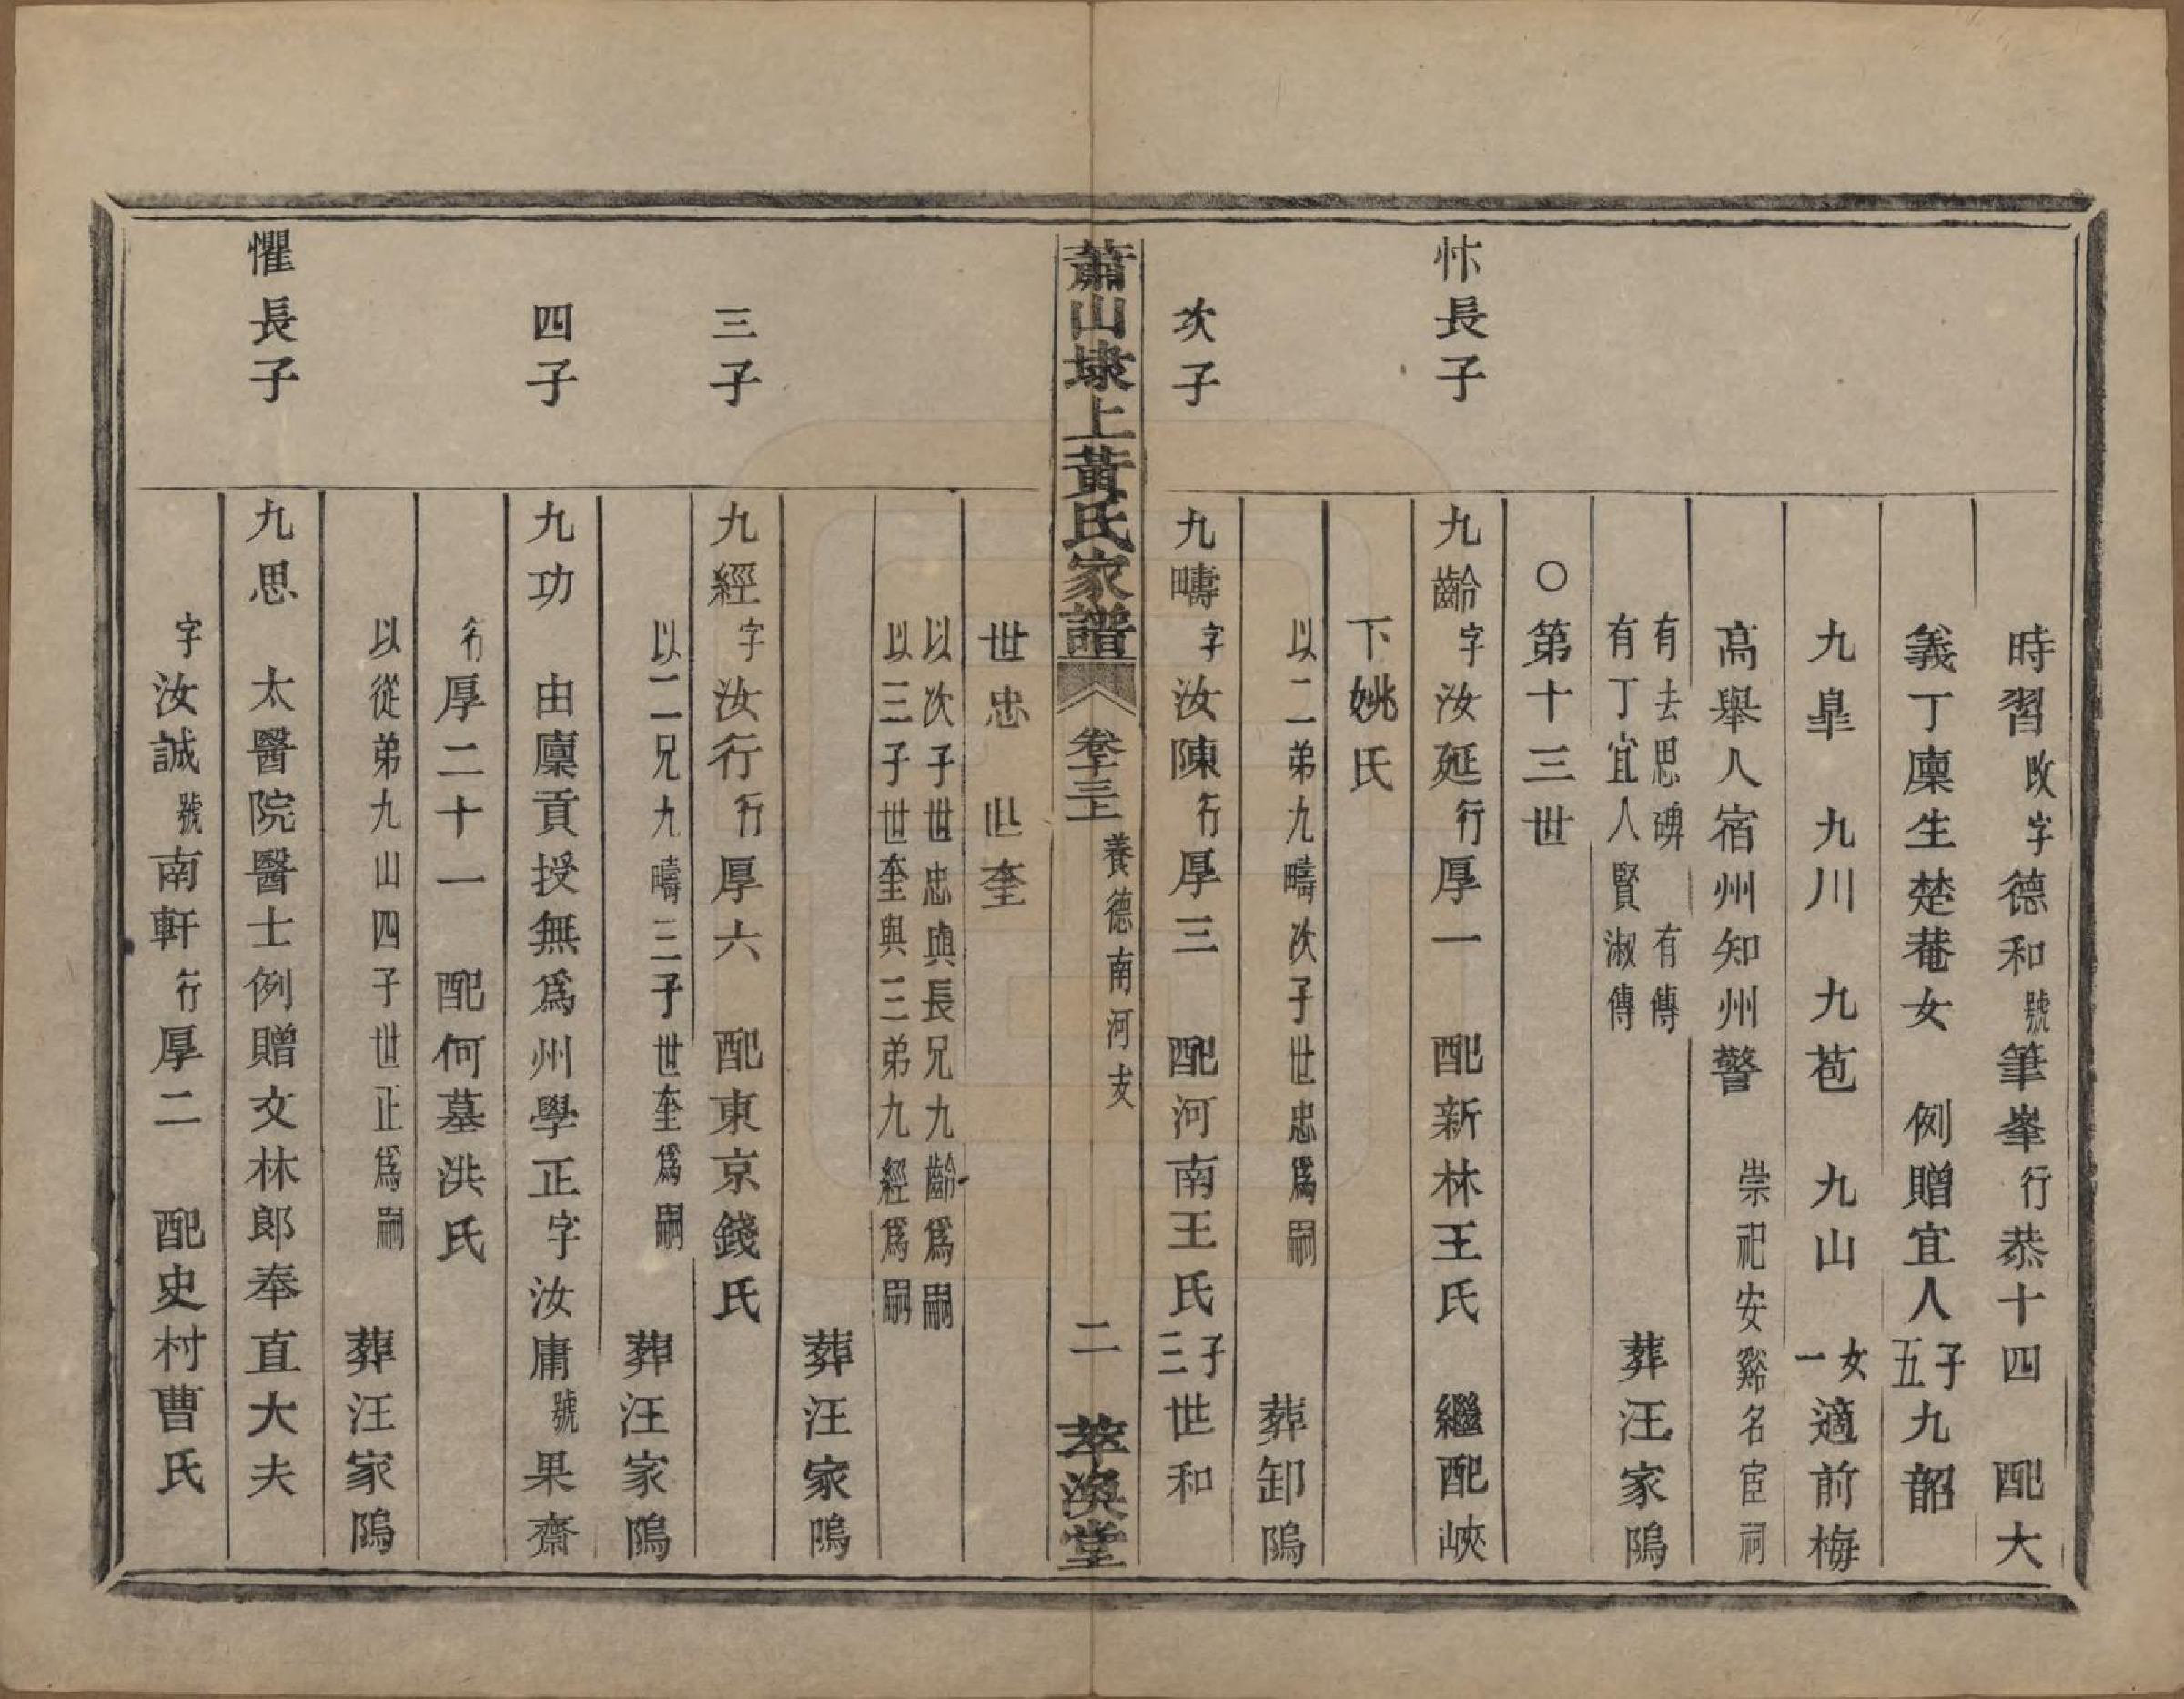 時習改字德和號筆峯行恭十四　配大
義丁廩生楚菴女　例贈宜人子五九韶
九臯　九川　九苞　九山　女一適前梅
高舉人宿州知州警　崇祀安谿名宦祠
有去思碑　有傳
有丁宜人賢淑傳　葬汪家隖
○第十三世
忭長子　九齡字汝延行厚一　配新林王氏　繼配峽
下姚氏
以二弟九疇次子世忠爲嗣　葬卸隖
次子　九疇字汝陳行厚三　配河南王氏子三世和
蕭山埭上黃氏家譜　卷十三上　養德南河支　二　萃渙堂
世忠　世奎
以次子世忠與長兄九齡爲嗣
以三子世奎與三弟九經爲嗣
葬汪家隖
三子　九經字汝行行厚六　配東京錢氏
以二兄九疇三子世奎爲嗣　葬汪家隖
四子　九功　由廩貢授無爲州學正字汝庸號果齋
行厚二十一　配何墓洪氏
以從弟九山四子世正爲嗣　葬汪家隖
懼長子　九思　太醫院醫士例贈文林郎奉直大夫
字汝誠號南軒行厚二　配史村曹氏